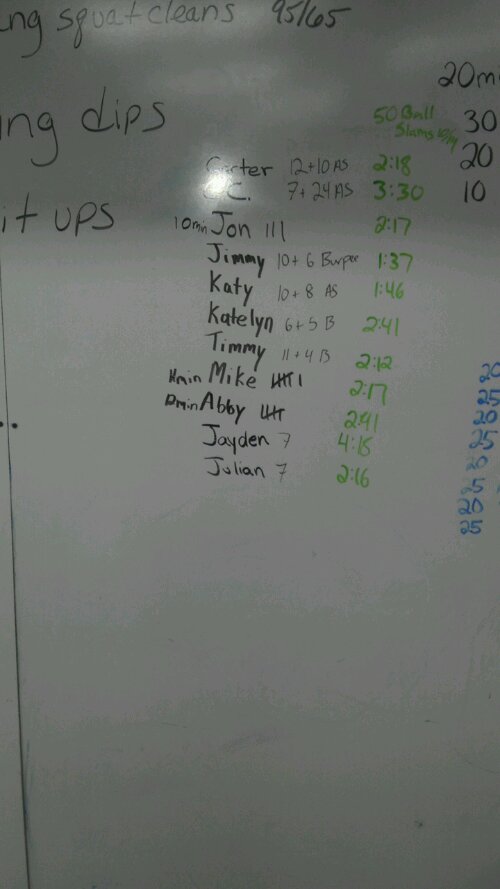 ng squat cleans 95/65
20mi
ing dips
50 Ball
Slams 10/14
30
20
10
Carter 12+10 AS 2:18
C. 7+24 AS 3:30
it ups
10min Jon III 2:17
Jimmy 10+6 Burpee 1:37
Katy 10+8 AS 1:46
Katelyn 6+5 B 2:41
Timmy 11+4 B 2:12
Mike 2:17
Abby 2:41
Jayden 7 4:15
Julian 7 2:16
20
25
20
25
20
25
20
25